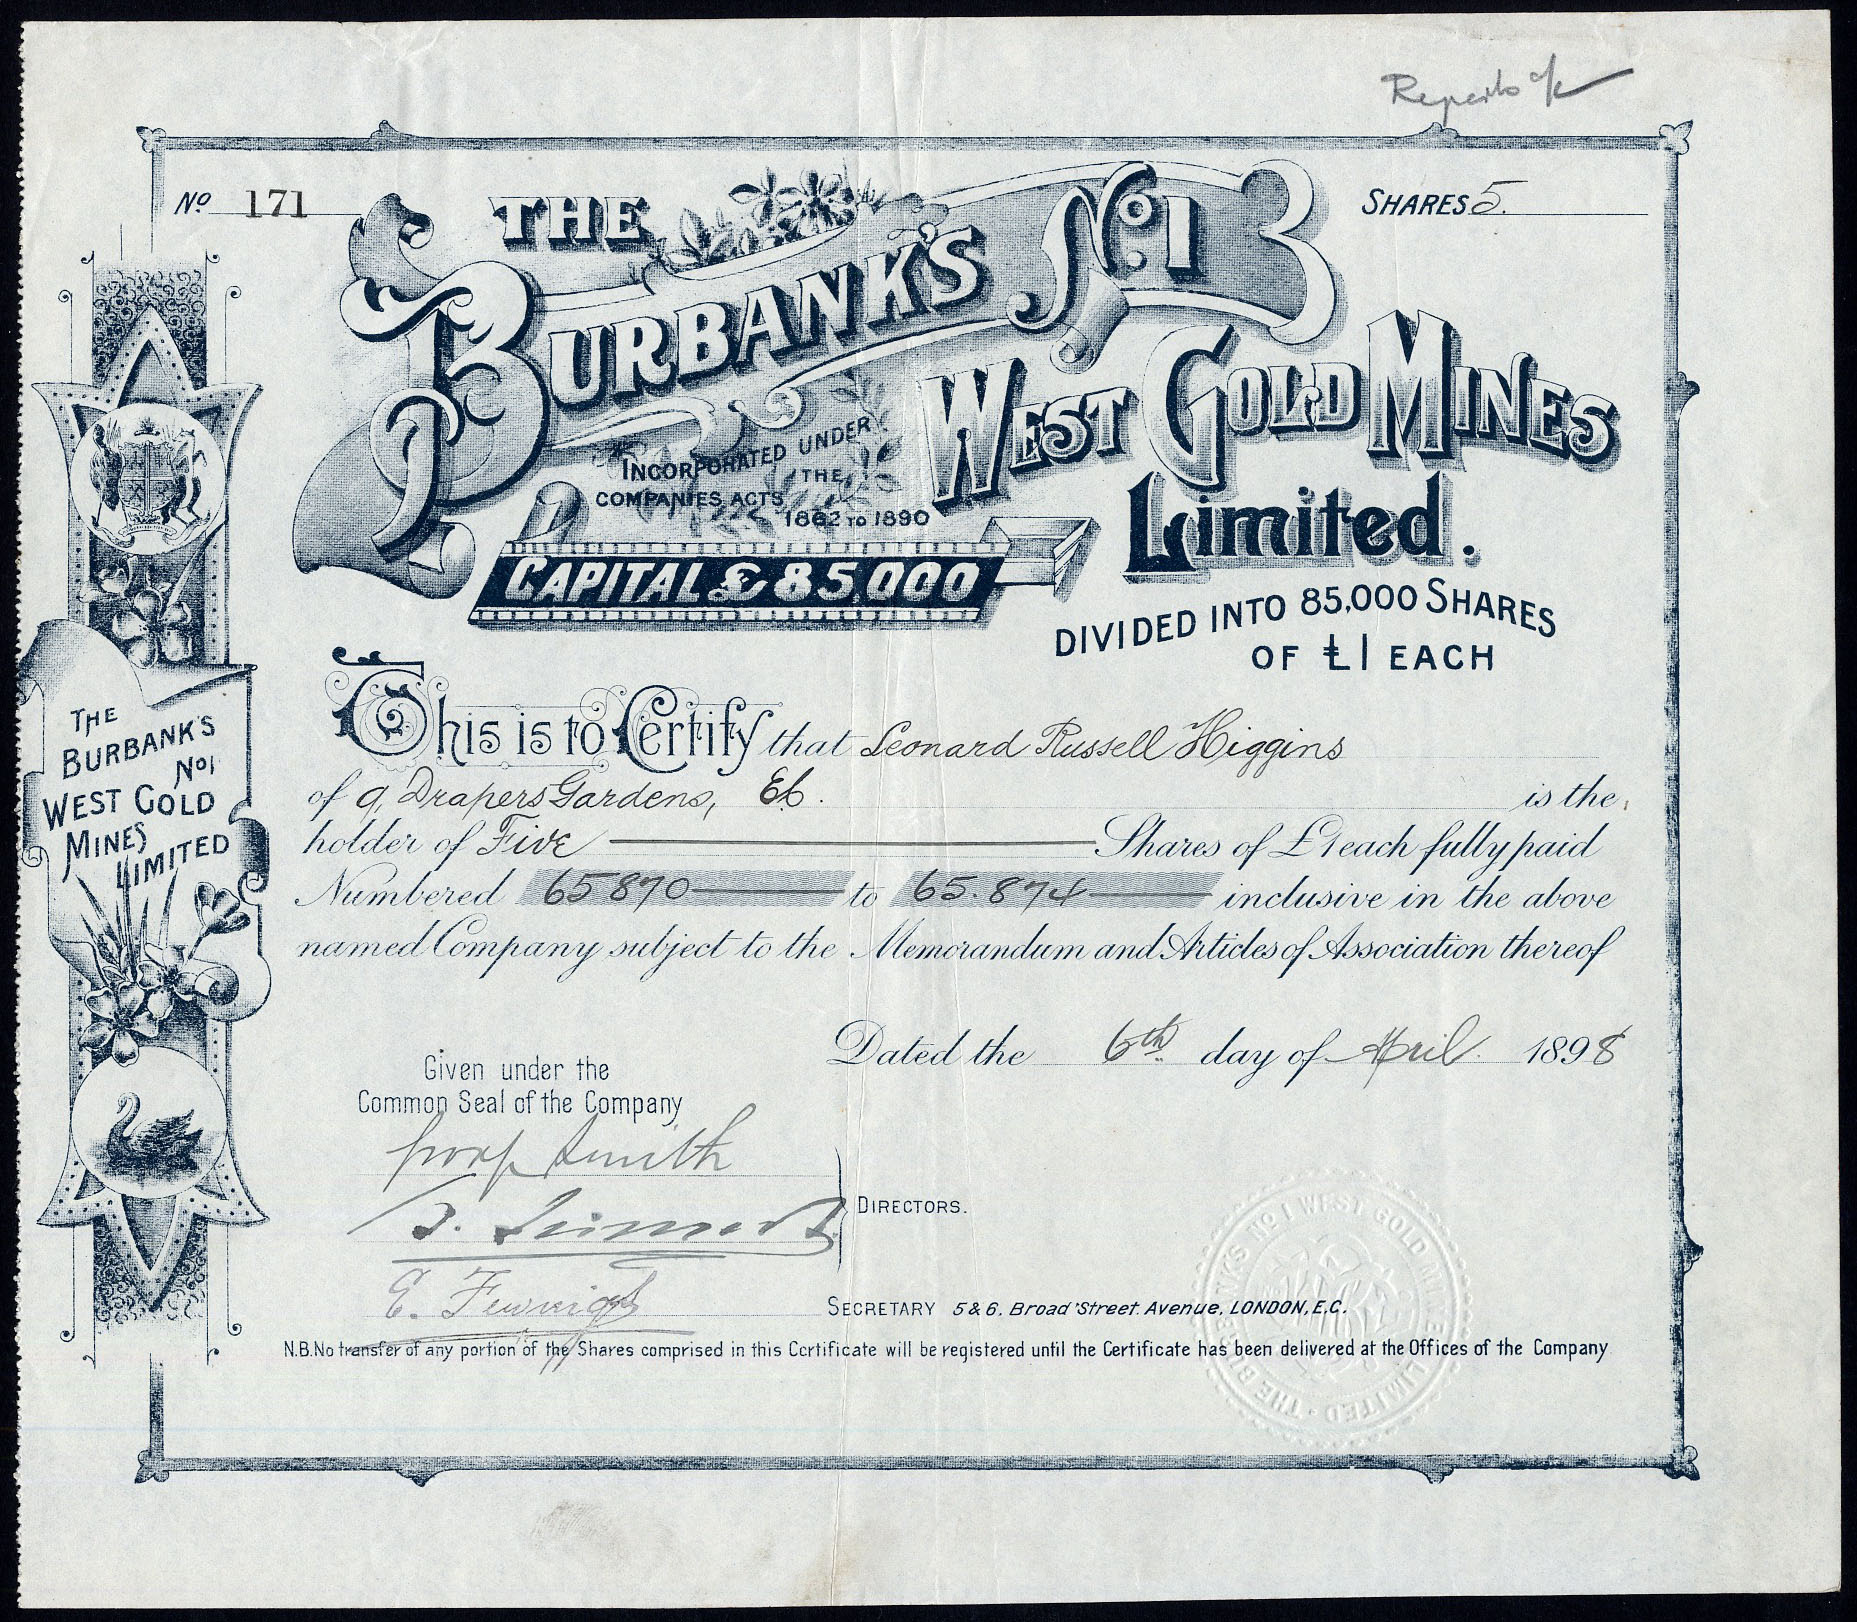 Nº 171
SHARES 5.
THE
BURBANK'S Nº 1
WEST GOLD MINES
Limited.
INCORPORATED UNDER
THE
COMPANIES ACTS
1862 TO 1890
CAPITAL £85,000
DIVIDED INTO 85,000 SHARES
OF £1 EACH
THE
BURBANK'S
Nº1
WEST GOLD
MINES
LIMITED
This is to Certify that Leonard Russell Higgins
of 9, Drapers Gardens, EC. is the
holder of Five Shares of £1 each fully paid
Numbered 65870 to 65.874 inclusive in the above
named Company subject to the Memorandum and Articles of Association thereof
Dated the 6th day of April 1898
Given under the
Common Seal of the Company
Smith
DIRECTORS.
E.
SECRETARY 5 & 6. Broad Street. Avenue, LONDON, E.C.
N.B. No transfer of any portion of the Shares comprised in this Certificate will be registered until the Certificate has been delivered at the Offices of the Company
THE BURBANKS Nº 1 WEST GOLD MINES LIMITED